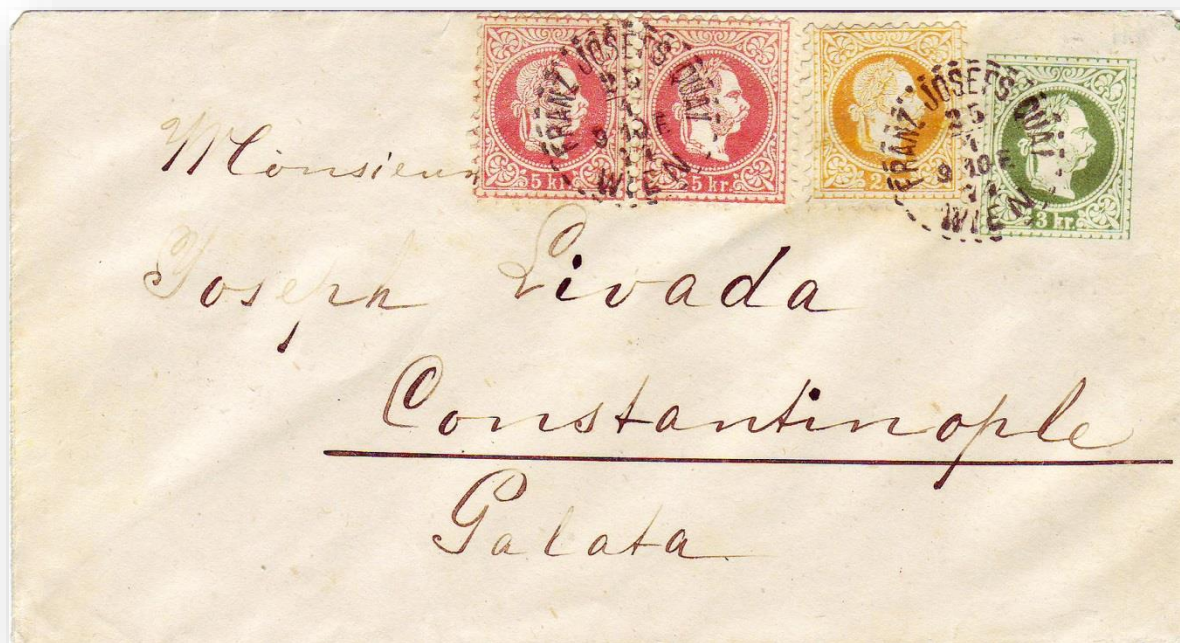 5 kr. 5 kr. 2 3 kr.
FRANZ JOSEFS QUAI
WIEN
FRANZ JOSEFS QUAI
25
1
9 10 F
WIEN
Monsieur
Joseph Livada
Constantinople
Galata